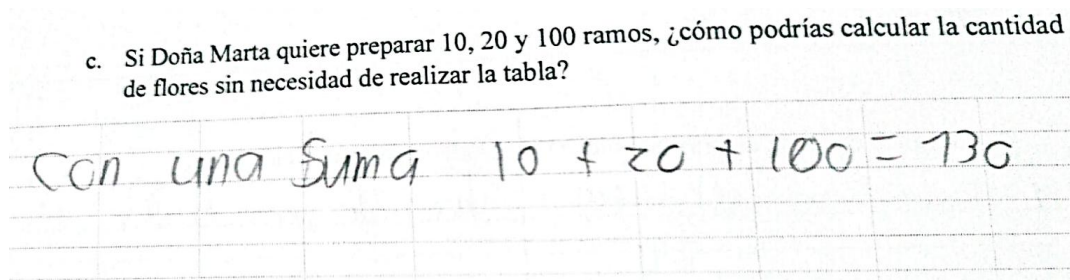 c. Si Doña Marta quiere preparar 10, 20 y 100 ramos, ¿cómo podrías calcular la cantidad
de flores sin necesidad de realizar la tabla?
Con una Suma 10 + 20 + 100 = 130